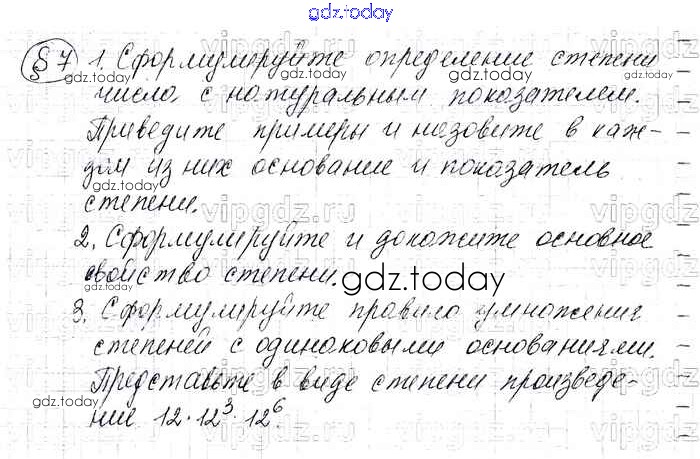 gdz.today
§ 7 1. Сформулируйте определение степени
числа с натуральным показателем.
Приведите примеры и назовите в каж-
дом из них основание и показатель
степени.
2. Сформулируйте и докажите основное
свойство степени.
gdz.today
3. Сформулируйте правило умножения
степеней с одинаковыми основаниями.
Представьте в виде степени произведе-
ние 12·12³·12⁶.